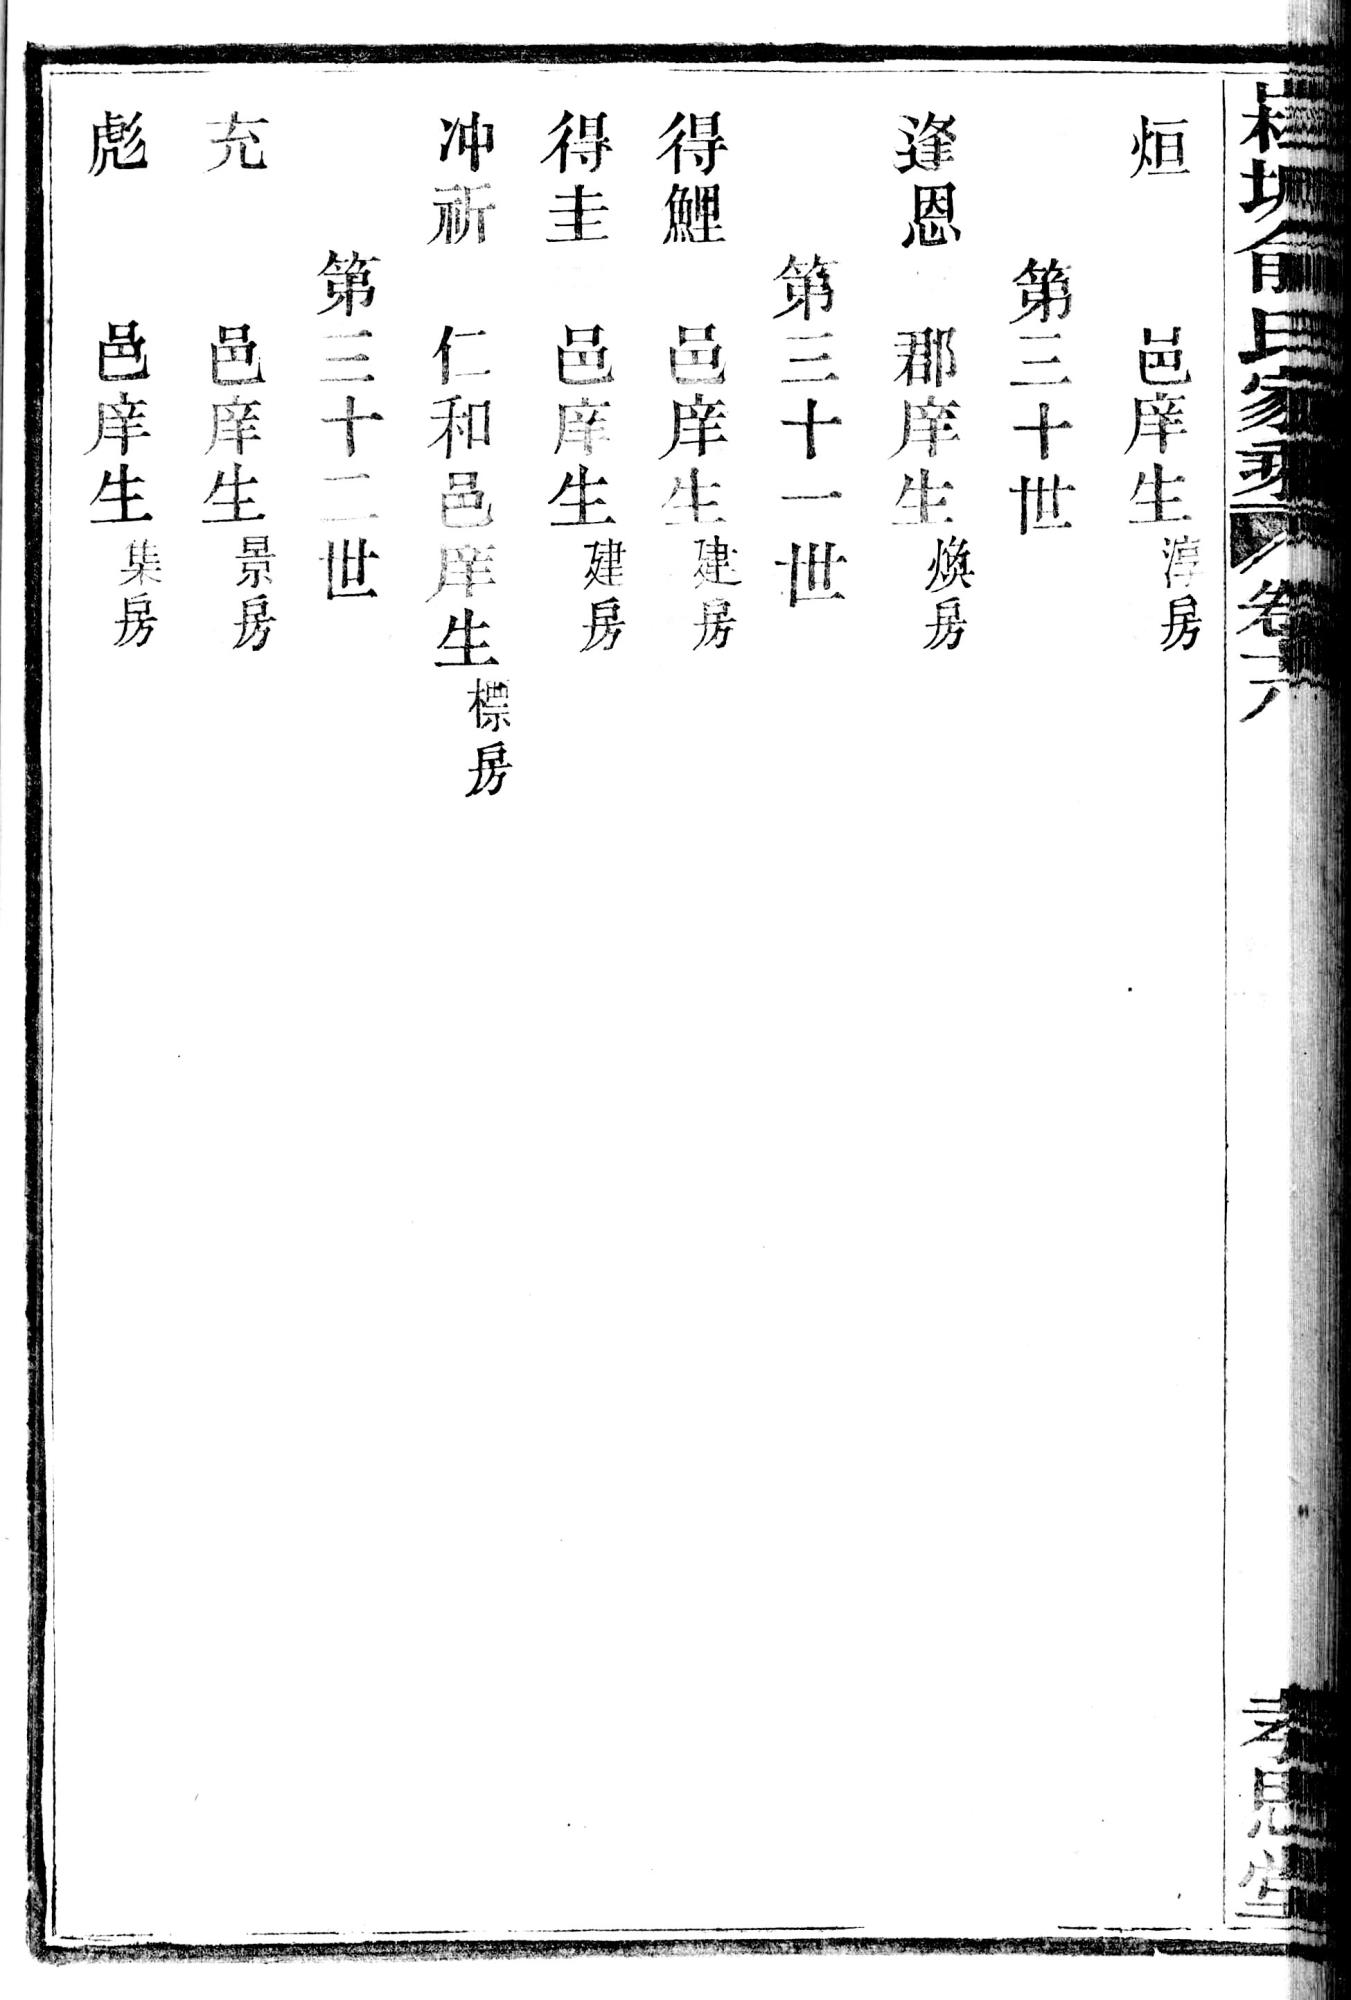 烜　邑庠生淳房
第三十世
逢恩　郡庠生煥房
第三十一世
得鯉　邑庠生建房
得圭　邑庠生建房
冲祈　仁和邑庠生標房
第三十二世
充　邑庠生景房
彪　邑庠生集房
俞氏家乘　卷六
孝思堂